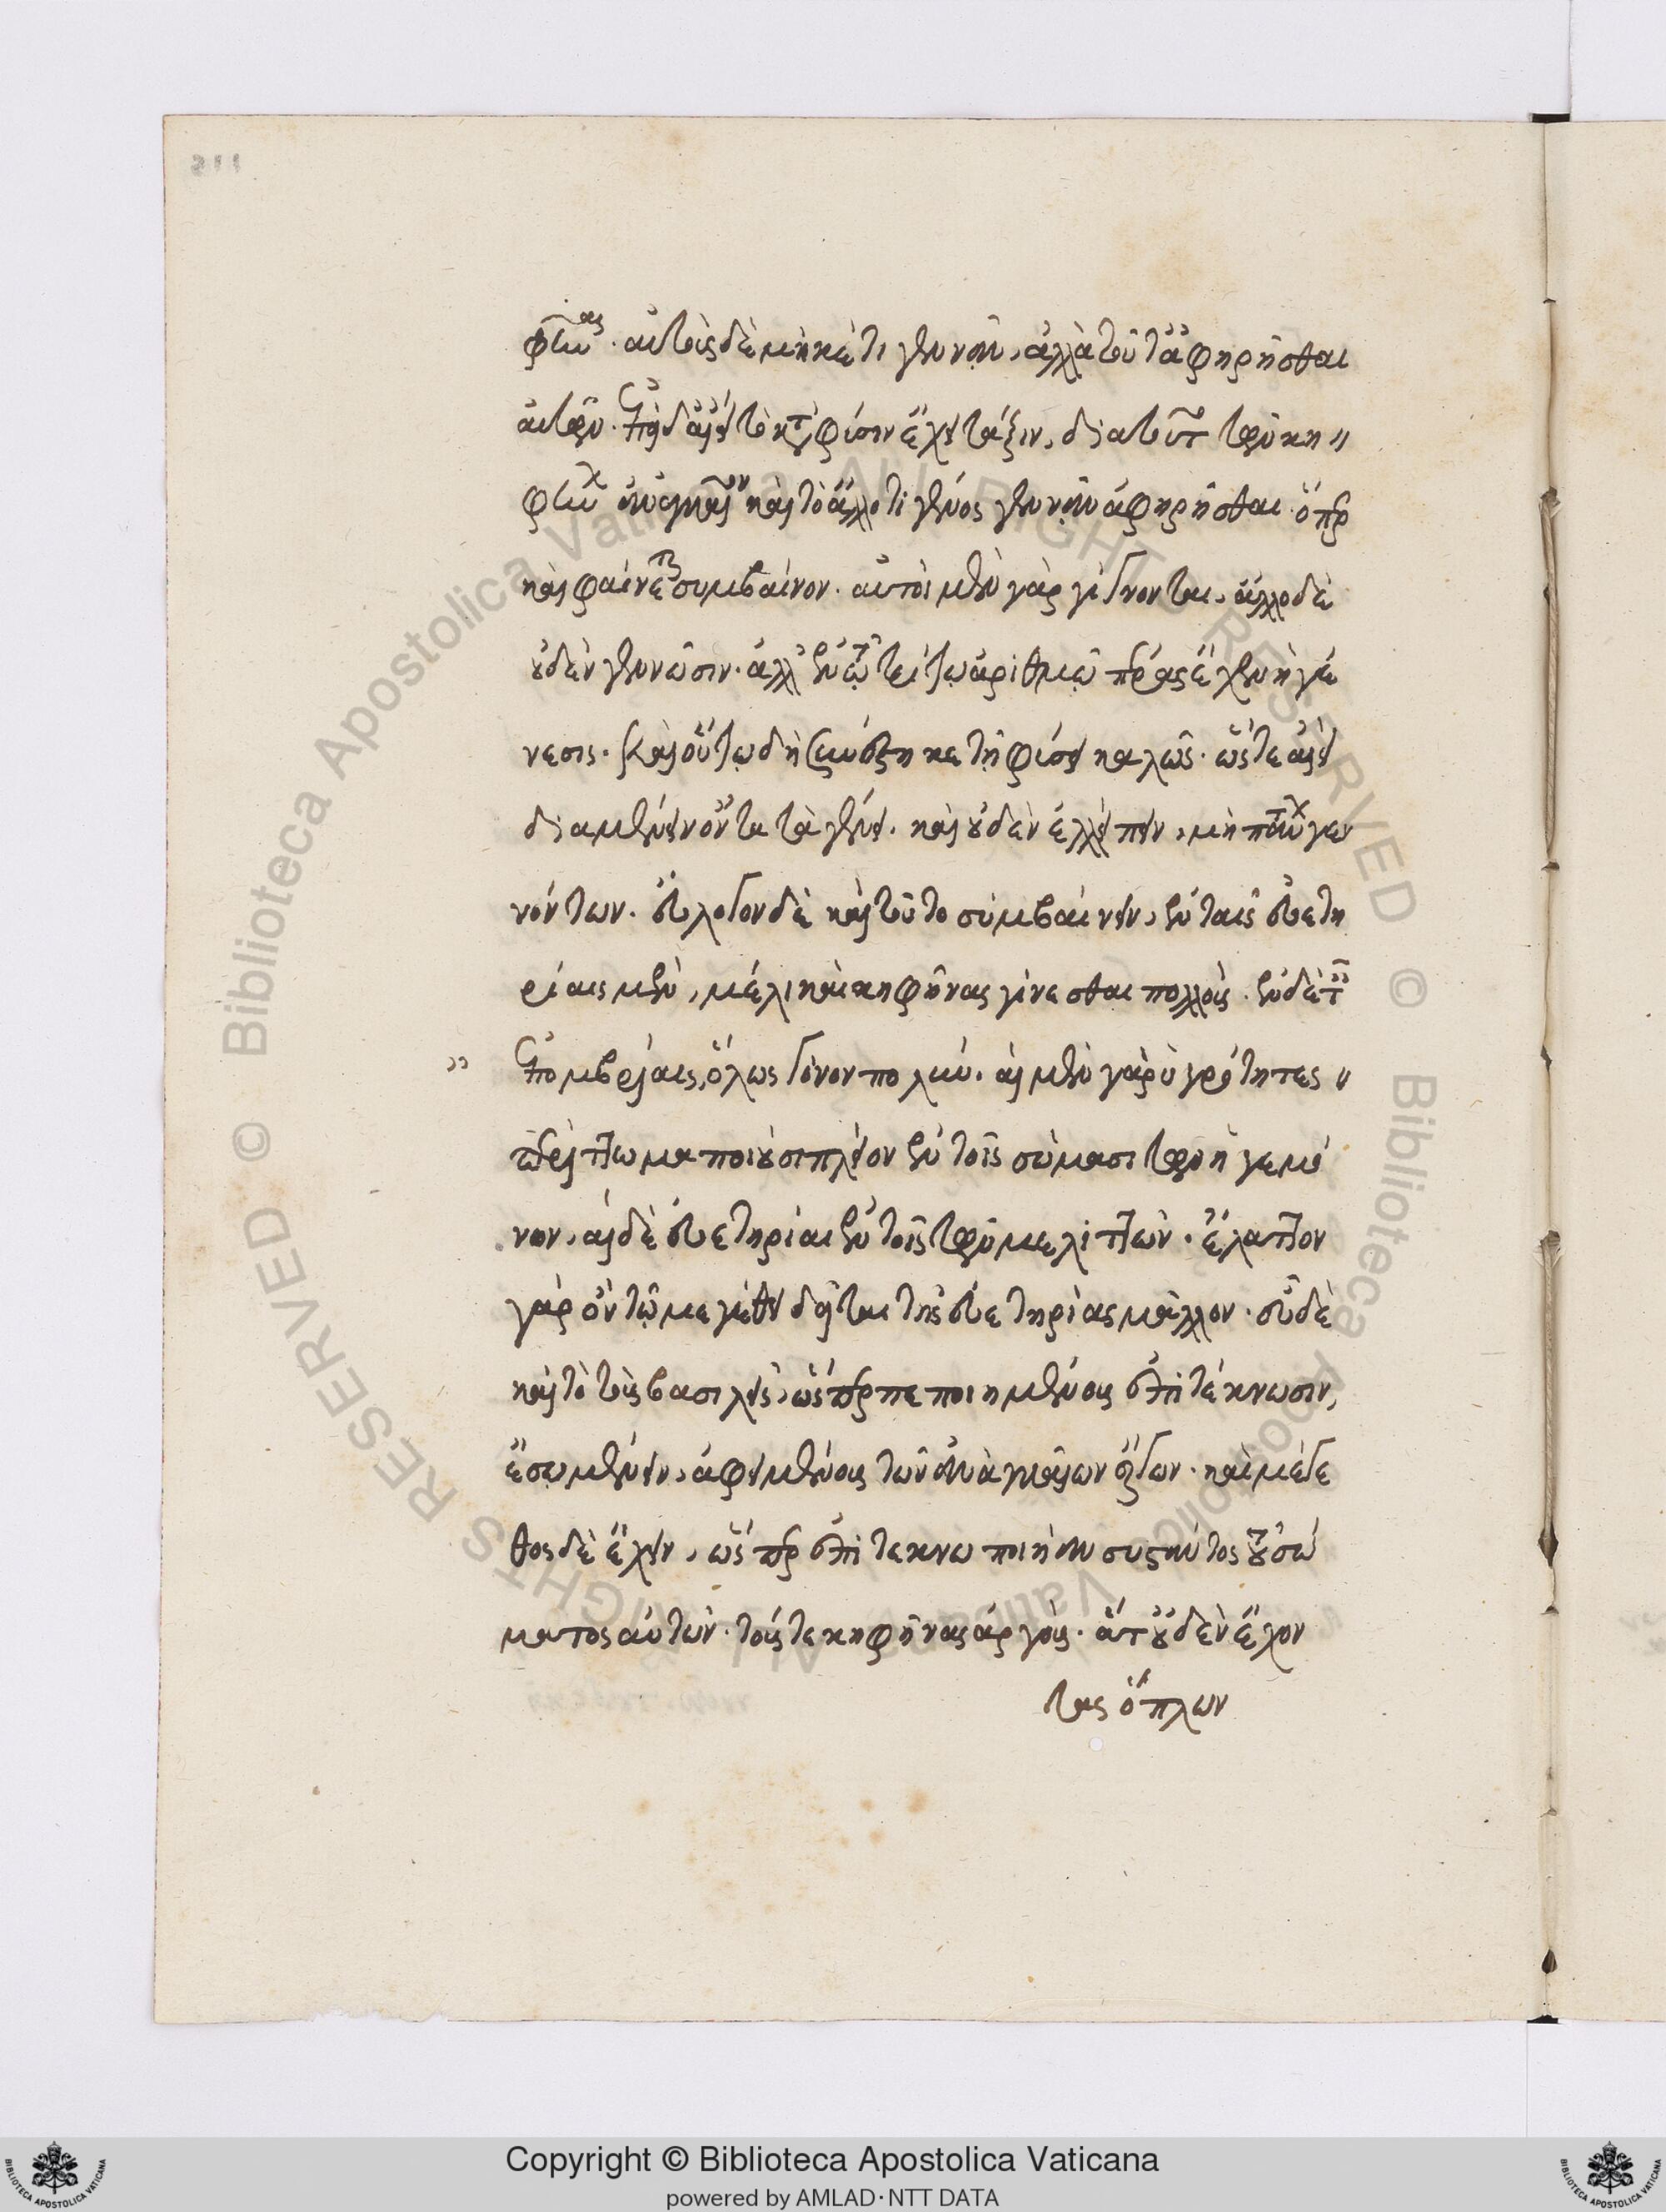 φῆνας. αὐτοὺς δὲ μηκέτι γεννᾶν, ἀλλὰ τοῦτ' ἀφηρῆσθαι
αὐτῶν. ἐπεὶ δ' ἀεὶ τὸ κατὰ φύσιν ἔχει τάξιν, διὰ τοῦτο τῶν κη
φήνων ἀναγκαῖον καὶ τὸ ἄλλο τι γένος γεννᾶν ἀφηρῆσθαι. ὅπερ
καὶ φαίνεται συμβαῖνον. αὐτοὶ μὲν γὰρ γίγνονται, ἄλλο δὲ
οὐδὲν γεννῶσιν. ἀλλ' ἐν τῷ τρίτῳ ἀριθμῷ πέρας ἔχεν ἡ γέ
νεσις. καὶ οὕτω δὴ συνέστηκε τῇ φύσει καλῶς. ὥστε ἀεὶ
διαμένειν ὄντα τὰ γένη. καὶ οὐδὲν ἐλλείπειν, μὴ πάντων γεν
νόντων. εὔλογον δὲ καὶ τοῦτο συμβαίνειν, ἐν ταῖς εὐετη
ρίαις μὲν, μέλι καὶ κηφῆνας γίνεσθαι πολλούς. ἐν δὲ ταῖς
ἐπομβρίαις, ὅλως γόνον πολύν. αἱ μὲν γὰρ ὑγρότητες
περίττωμα ποιοῦσι πλεῖον ἐν τοῖς σώμασι τῶν ἡγεμό
νων, αἱ δὲ εὐετηρίαι ἐν τοῖς τῶν μελιττῶν. ἔλαττον
γὰρ ὂν τῷ μεγέθει δεῖται τῆς εὐετηρίας μᾶλλον. εὖ δὲ
καὶ τὸ τοὺς βασιλεῖς, ὥσπερ πεποιημένους ἐπὶ τέκνωσιν,
ἔσω μένειν, ἀφειμένους τῶν ἀναγκαίων ἔργων. καὶ μέγε
θος δὲ ἔχειν, ὥσπερ ἐπὶ τεκνοποιίαν συστάντος τοῦ σώ
ματος αὐτῶν. τούς τε κηφῆνας ἀργούς. ἅτ' οὐδὲν ἔχον
τας ὅπλον
Copyright © Biblioteca Apostolica Vaticana
powered by AMLAD·NTT DATA